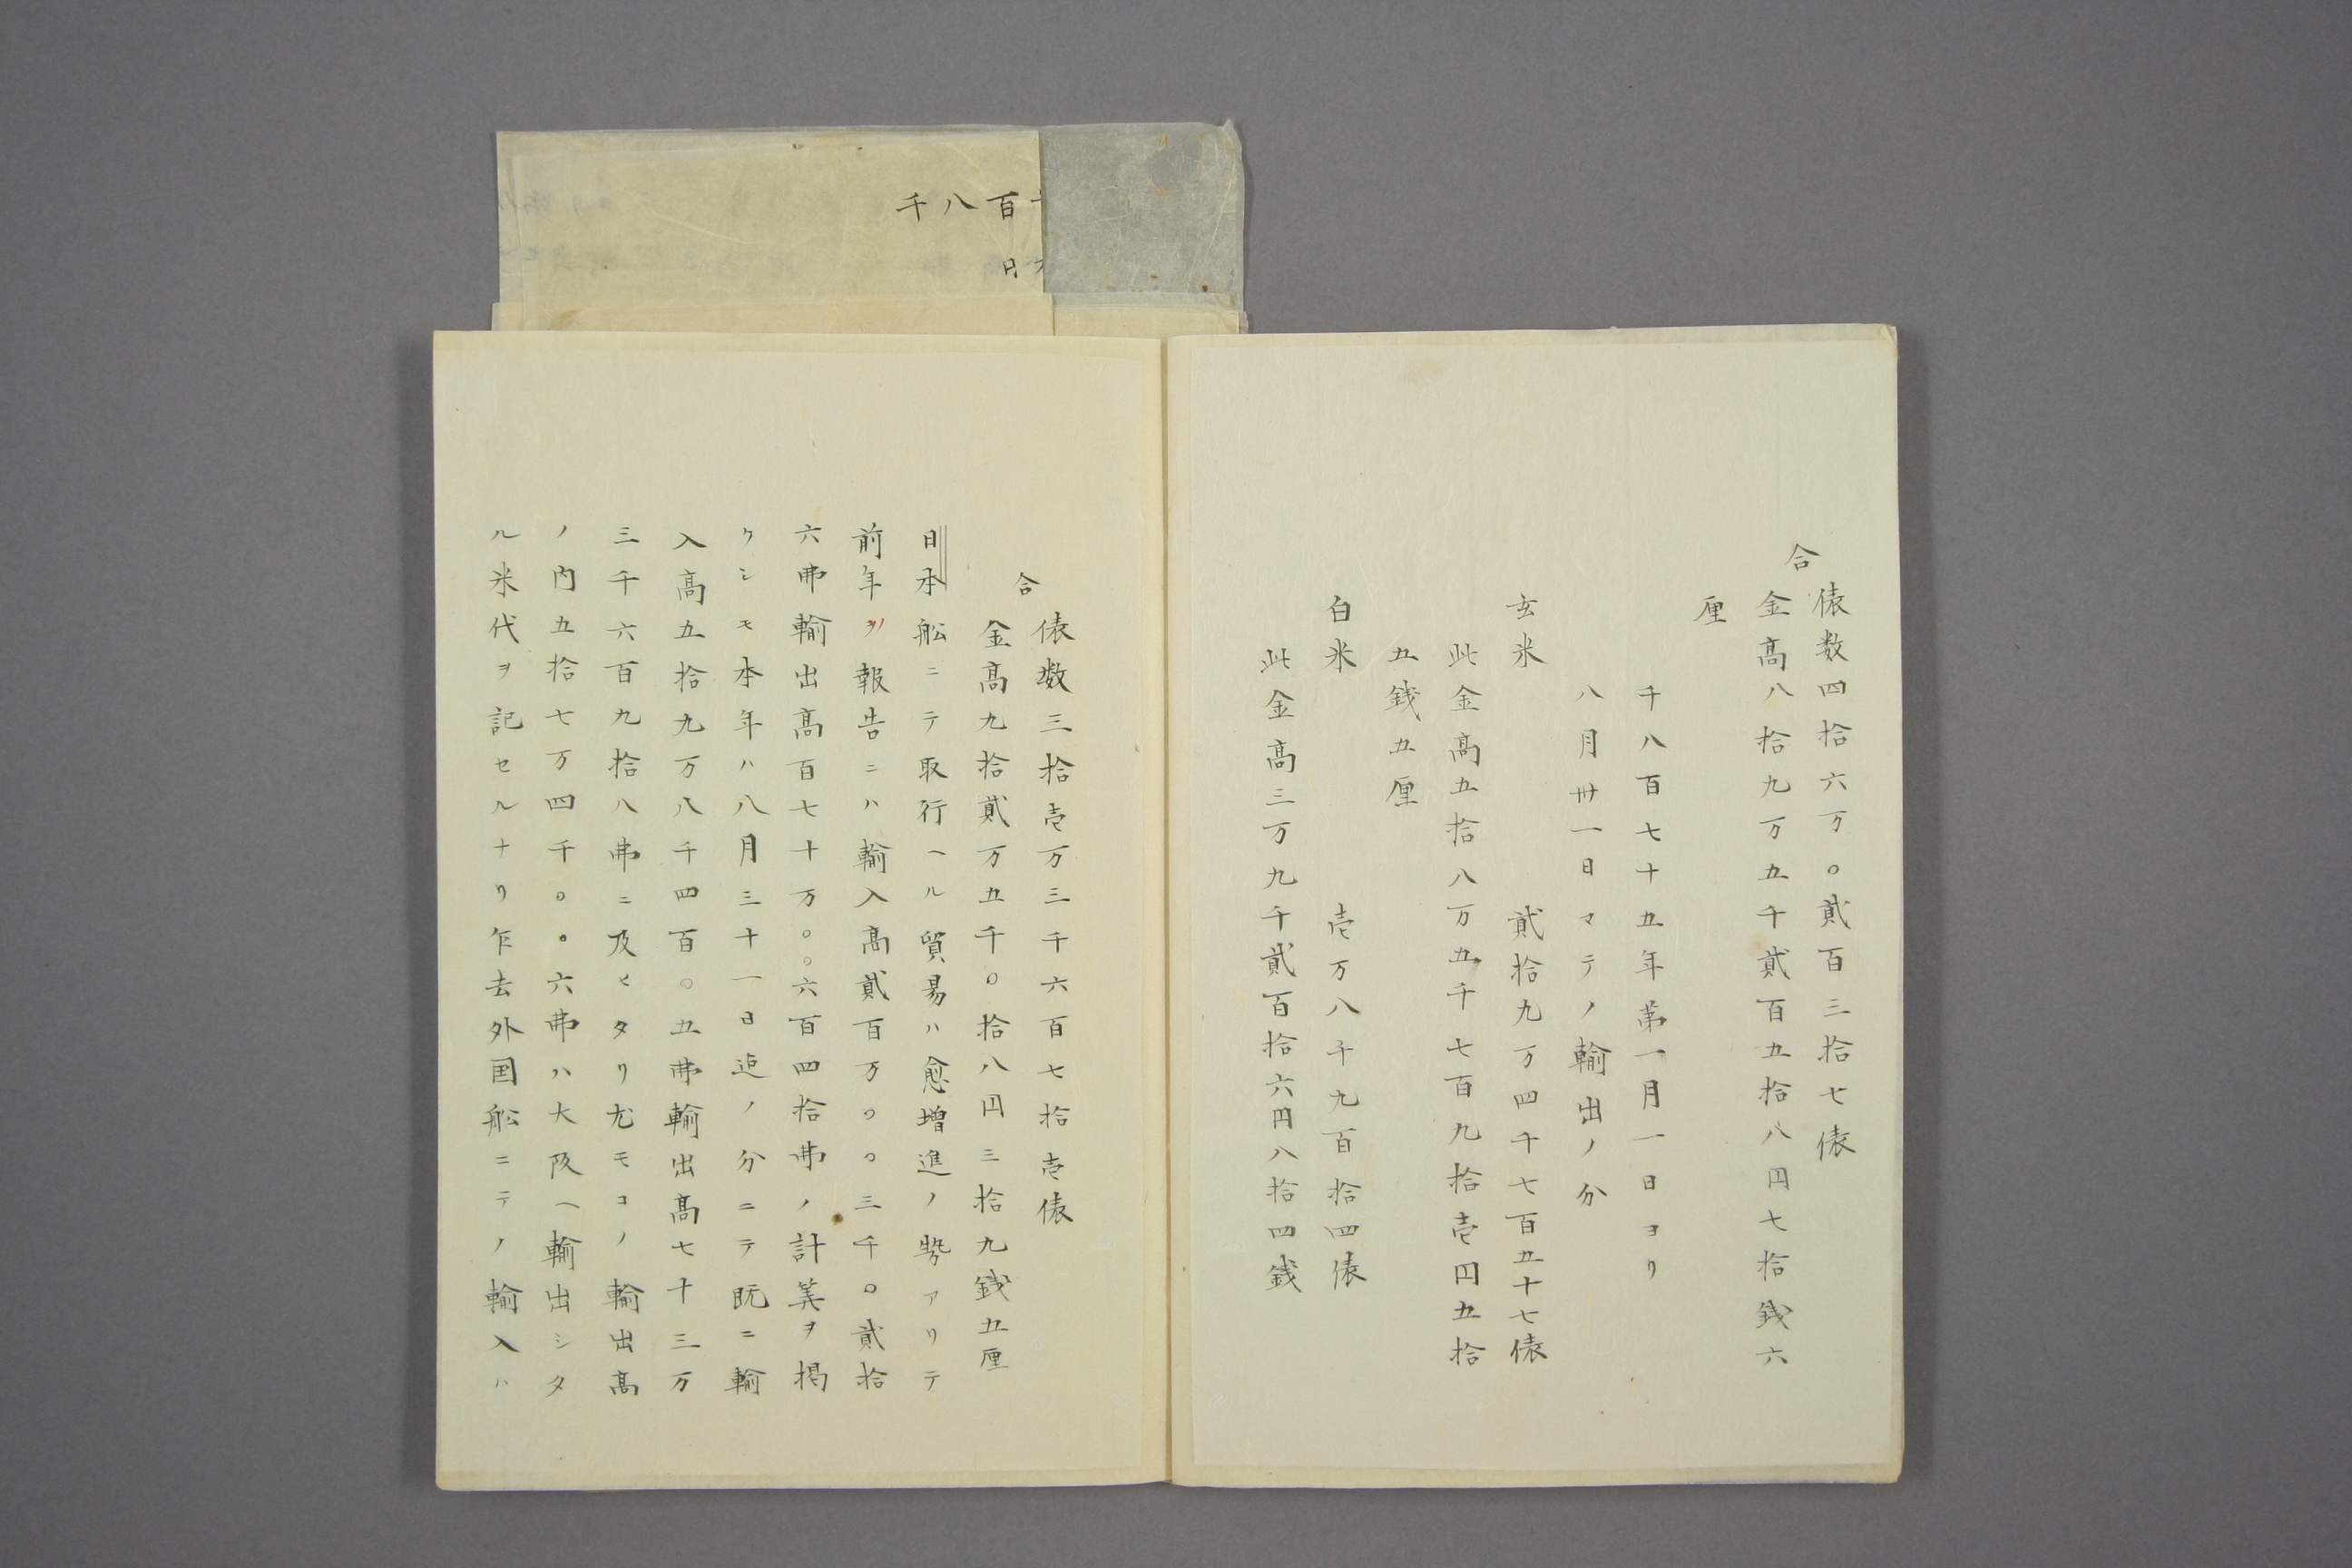 合
俵数四拾六万〇貮百三拾七俵
金髙八拾九万五千貮百五拾八円七拾銭六
厘
千八百七十五年第一月一日ヨリ
八月卅一日マテノ輸出ノ分
玄米 貮拾九万四千七百五十七俵
此金髙五拾八万五千七百九拾壱円五拾
五銭五厘
白米 壱万八千九百拾四俵
此金髙三万九千貮百拾六円八拾四銭
合
俵数三拾壱万三千六百七拾壱俵
金髙九拾貮万五千〇拾八円三拾九銭五厘
日本舩ニテ取行ヘル貿易ハ愈増進ノ勢アリテ
前年ノ報告ニハ輸入髙貮百万〇〇三千〇貮拾
六弗輸出髙百七十万〇〇六百四拾弗ノ計筭ヲ掲
ケシモ本年ハ八月三十一日迠ノ分ニテ既ニ輸
入髙五拾九万八千四百〇五弗輸出髙七十三万
三千六百九拾八弗ニ及ヒタリ尤モコノ輸出髙
ノ内五拾七万四千〇〇六弗ハ大阪ヘ輸出シタ
ル米代ヲ記セルナリ乍去外国舩ニテノ輸入ハ
百八千
円